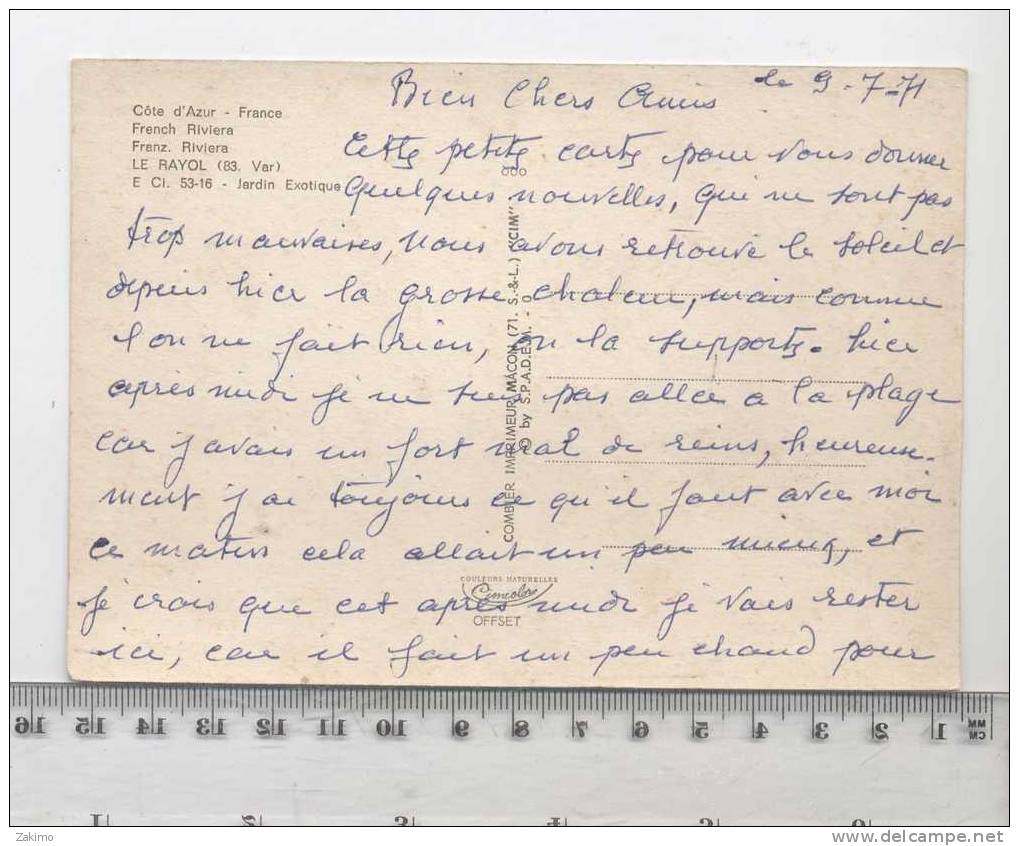 Bien Chers Amis le 9-7-71
Côte d'Azur - France
French Riviera
Franz. Riviera
LE RAYOL (83. Var)
E Cl. 53-16 - Jardin Exotique
Cette petite carte pour vous donner
quelques nouvelles, qui ne sont pas
trop mauvaises, nous avons retrouvé le soleil et
depuis hier la grosse chaleur, mais comme
l'on ne fait rien, on la supporte. hier
après midi je ne suis pas allée a la plage
car j'avais un fort mal de reins, heureuse-
ment j'ai toujours ce qu'il faut avec moi
ce matin cela allait un peu mieux, et
je crois que cet après midi je vais rester
ici, car il fait un peu chaud pour
COMBIER IMPRIMEUR MACON (71. S.-&-L.) ("CIM"
© by S.P.A.D.E.M. -
COULEURS NATURELLES
Cimcolor
OFFSET
16 15 14 13 12 11 10 9 8 7 6 5 4 3 2 1 CM
MM
1 2 3 4 5 6
Zakimo
www.delcampe.net